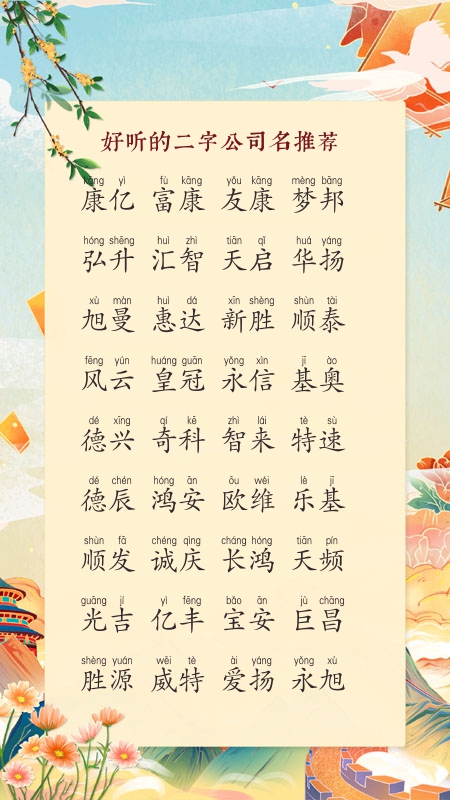 好听的二字公司名推荐
kāng yì fù kāng yǒu kāng mèng bāng
康亿 富康 友康 梦邦
hóng shēng huì zhì tiān qǐ huá yáng
弘升 汇智 天启 华扬
xù màn huì dá xīn shèng shùn tài
旭曼 惠达 新胜 顺泰
fēng yún huáng guān yǒng xìn jī ào
风云 皇冠 永信 基奥
dé xīng qí kē zhì lái tè sù
德兴 奇科 智来 特速
dé chén hóng ān ōu wéi lè jī
德辰 鸿安 欧维 乐基
shùn fā chéng qìng cháng hóng tiān pín
顺发 诚庆 长鸿 天频
guāng jí yì fēng bǎo ān jù chāng
光吉 亿丰 宝安 巨昌
shèng yuán wēi tè ài yáng yǒng xù
胜源 威特 爱扬 永旭